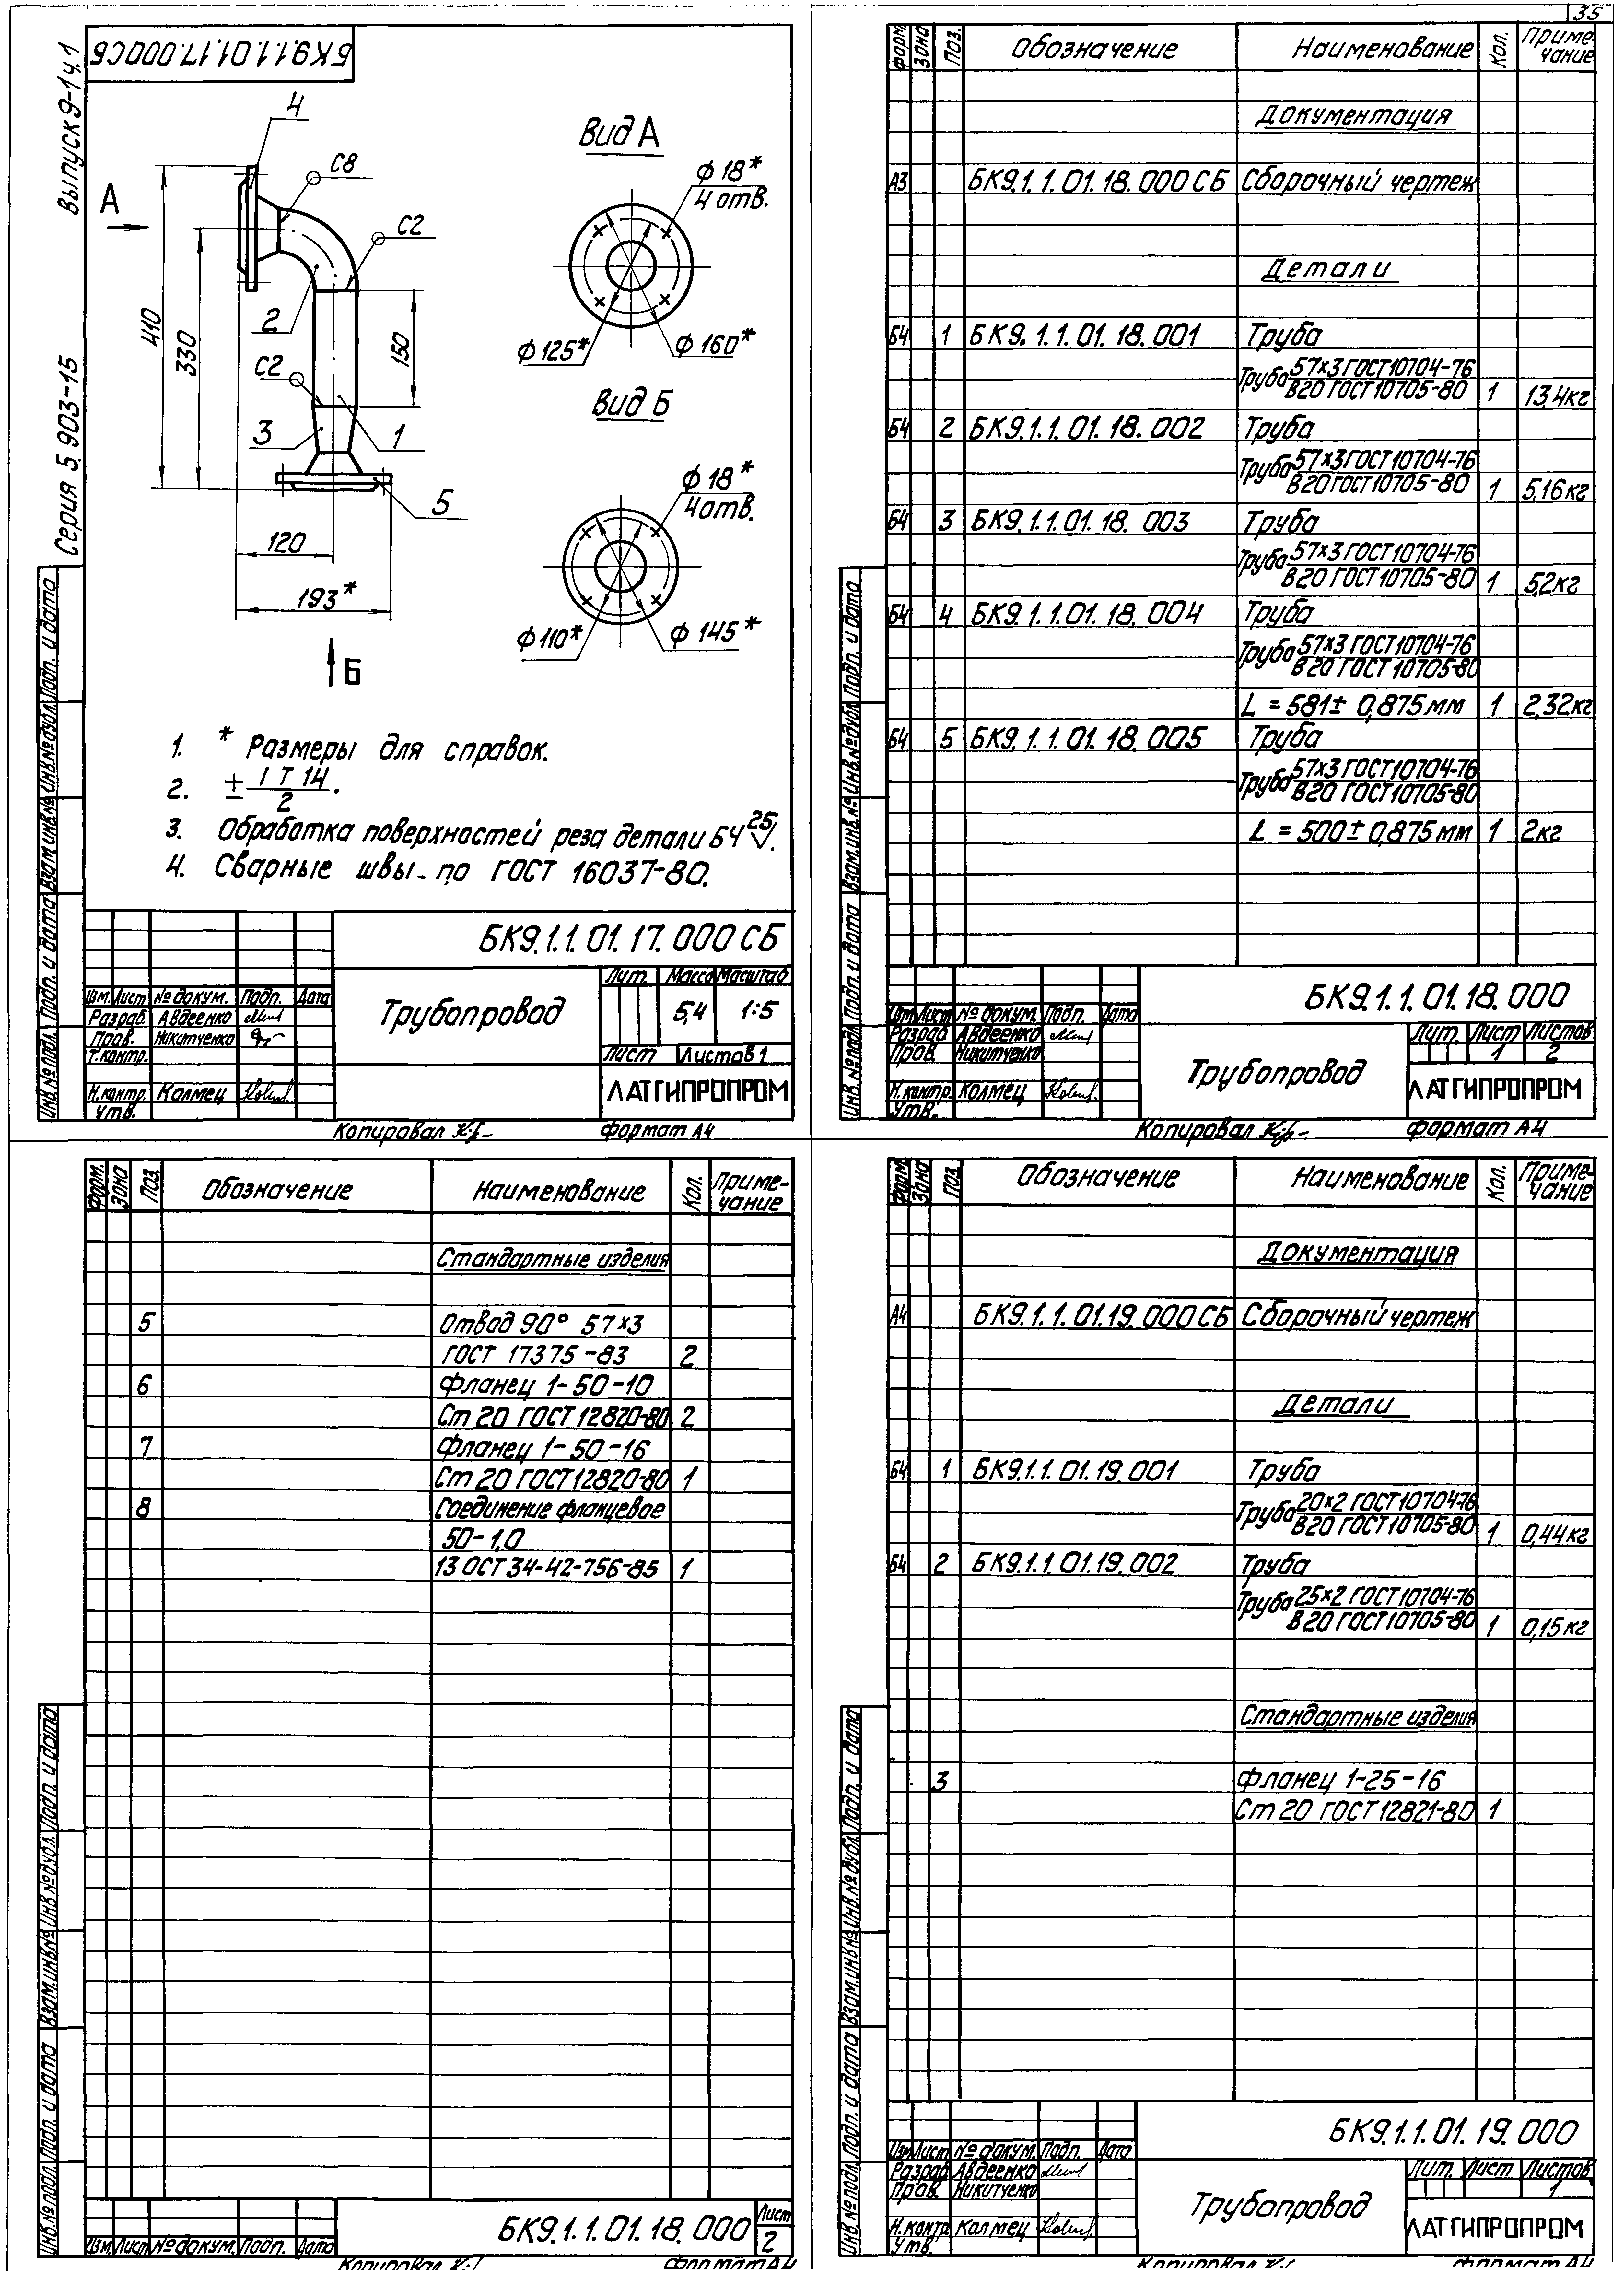 35
БК9.1.1.01.17.000СБ
Выпуск 9-1 ч.1
Серия 5.903-15
4
С8
А
С2
2
410
330
150
С2
3
1
5
120
193*
Б
Вид А
φ18*
4 отв.
φ125*
φ160*
Вид Б
φ18*
4 отв.
φ110*
φ145*
1. * Размеры для справок.
2. ± IT14/2.
3. Обработка поверхностей реза детали БЧ 25√.
4. Сварные швы по ГОСТ 16037-80.
БК9.1.1.01.17.000СБ
Изм. Лист № докум. Подп. Дата
Разраб. Авдеенко
Пров. Никитченко
Т.контр.
Н.контр. Колмец
Утв.
Трубопровод
Лит. Масса Масштаб
5,4 1:5
Лист Листов 1
ЛАТГИПРОПРОМ
Копировал
Формат А4
Инв.№ подл. Подп. и дата Взам.инв.№ Инв.№ дубл. Подп. и дата
Форм. Зона Поз. Обозначение Наименование Кол. Примечание
Документация
А3 БК9.1.1.01.18.000СБ Сборочный чертеж
Детали
Б4 1 БК9.1.1.01.18.001 Труба
Труба 57×3 ГОСТ 10704-76
В20 ГОСТ 10705-80 1 13,4кг
Б4 2 БК9.1.1.01.18.002 Труба
Труба 57×3 ГОСТ 10704-76
В20 ГОСТ 10705-80 1 5,16кг
Б4 3 БК9.1.1.01.18.003 Труба
Труба 57×3 ГОСТ 10704-76
В20 ГОСТ 10705-80 1 5,2кг
Б4 4 БК9.1.1.01.18.004 Труба
Труба 57×3 ГОСТ 10704-76
В20 ГОСТ 10705-80
L = 581± 0,875мм 1 2,32кг
Б4 5 БК9.1.1.01.18.005 Труба
Труба 57×3 ГОСТ 10704-76
В20 ГОСТ 10705-80
L = 500± 0,875мм 1 2кг
БК9.1.1.01.18.000
Изм. Лист № докум. Подп. Дата
Разраб. Авдеенко
Пров. Никитченко
Н.контр. Колмец
Утв.
Трубопровод
Лит. Лист Листов
1 2
ЛАТГИПРОПРОМ
Копировал
Формат А4
Инв.№ подл. Подп. и дата Взам.инв.№ Инв.№ дубл. Подп. и дата
Форм. Зона Поз. Обозначение Наименование Кол. Примечание
Стандартные изделия
5 Отвод 90° 57×3
ГОСТ 17375-83 2
6 Фланец 1-50-10
Ст 20 ГОСТ 12820-80 2
7 Фланец 1-50-16
Ст 20 ГОСТ 12820-80 1
8 Соединение фланцевое
50-1,0
13 ОСТ 34-42-756-85 1
БК9.1.1.01.18.000
Лист
2
Изм. Лист № докум. Подп. Дата
Копировал
Формат А4
Инв.№ подл. Подп. и дата Взам.инв.№ Инв.№ дубл. Подп. и дата
Форм. Зона Поз. Обозначение Наименование Кол. Примечание
Документация
А4 БК9.1.1.01.19.000СБ Сборочный чертеж
Детали
Б4 1 БК9.1.1.01.19.001 Труба
Труба 20×2 ГОСТ 10704-76
В20 ГОСТ 10705-80 1 0,44кг
Б4 2 БК9.1.1.01.19.002 Труба
Труба 25×2 ГОСТ 10704-76
В20 ГОСТ 10705-80 1 0,15кг
Стандартные изделия
3 Фланец 1-25-16
Ст 20 ГОСТ 12821-80 1
БК9.1.1.01.19.000
Изм. Лист № докум. Подп. Дата
Разраб. Авдеенко
Пров. Никитченко
Н.контр. Колмец
Утв.
Трубопровод
Лит. Лист Листов
1
ЛАТГИПРОПРОМ
Копировал
Формат А4
Инв.№ подл. Подп. и дата Взам.инв.№ Инв.№ дубл. Подп. и дата